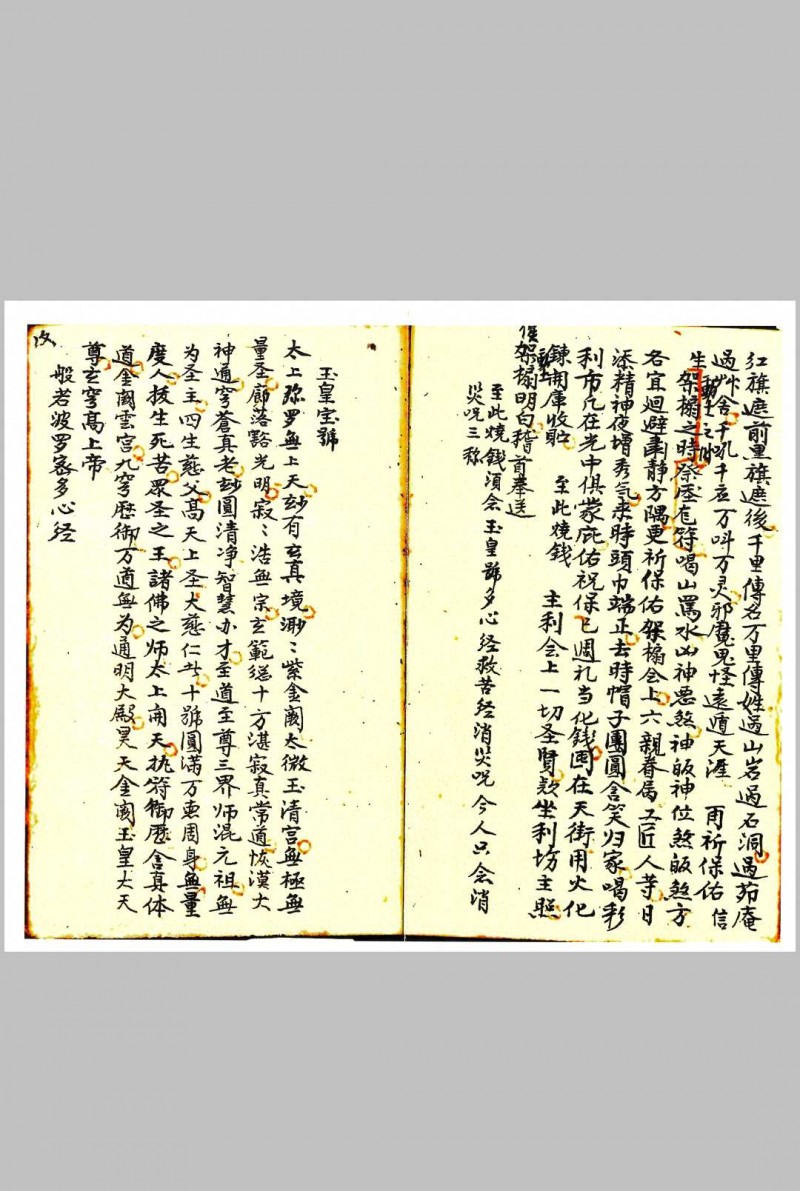 紅旗遮前黑旗遮後千里傳名万里傳姓過山岩過石洞過茆庵
過舍千吼千应万呌万灵邪魔鬼怪遠遁天涯 再祈保佑信
生架橋之時祭
動土之時
煞符喝山罵水山神惡煞神皈神位煞皈煞方
各宜廻避肅静方隅更祈保佑架橋会上六親眷屬工匠人等日
添精神夜增秀气来時頭巾端正去時帽子團圓含笑归家喝彩
利市凢在光中俱蒙庇佑祝保已週礼当化錢圓在天街用火化
鍊開庫收貯 至此燒錢 主利会上一切圣賢欵坐利坊主照
俟架橋明白稽首奉送
動土
至此燒錢須念玉皇號多心经救苦经消災咒今人只念消
災咒三称
玉皇宝號
太上弥罗無上天玅有玄真境渺〻紫金闕太微玉清宫無極無
量圣廊落豁光明寂〻浩無宗玄範縂十方湛寂真常道恢漠大
神通穹蒼真老玅圓清净智慧办才至道至尊三界师混元祖無
为圣主四生慈父髙天上圣大慈仁十號圓满万惪周身無量
度人拔生死苦眾圣之王諸佛之师太上開天执符御历含真体
道金闕雲宫九穹歷御万道無为通明大殿昊天金闕玉皇大天
尊玄穹髙上帝
般若波罗密多心经